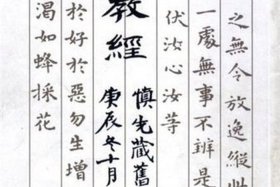 之無令放逸縱
一處無事不辨是
伏汝心汝等
慎先藏舊
教經
庚辰冬十月
於好於惡勿生增
渴如蜂採花